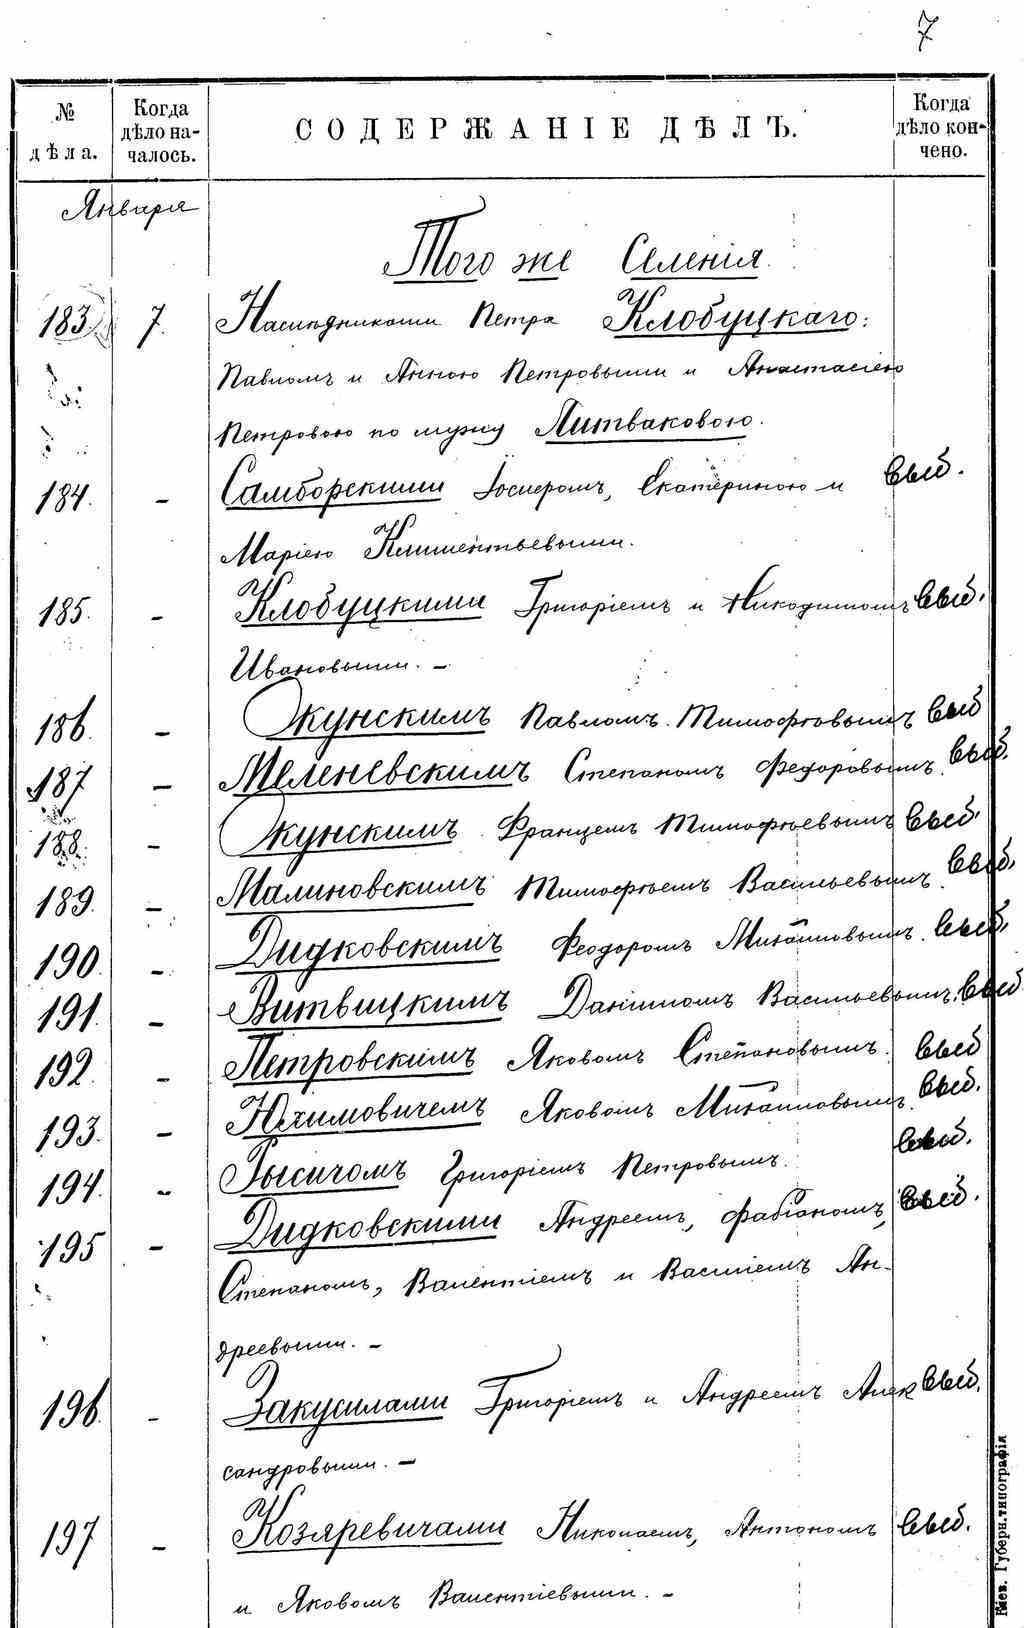 7
№ дѣла.
Когда дѣло началось.
СОДЕРЖАНІЕ ДѢЛЪ.
Когда дѣло кончено.
Января
Того же Селенія
183 7. Наслѣдниками Петра Клобуцкаго:
Павломъ и Анною Петровыми и Анастасіею
Петровою по мужу Литваковою.
184. - Самборскими Іосифомъ, Екатериною и выб.
Маріею Климентьевыми.
185. - Клобуцкими Григоріемъ и Никодимомъ выб.
Ивановыми. -
186. - Жунскимъ Павломъ Тимофѣевымъ выб
187 - Меленевскимъ Степаномъ Федоровымъ. выб.
188. - Жунскимъ Францемъ Тимофѣевымъ выб.
189. - Малиновскимъ Тимофѣемъ Васильевымъ. выб.
190. - Дидковскимъ Феодоромъ Михайловымъ. выб.
191. - Витвицкимъ Даніиломъ Васильевымъ. выб
192. - Петровскимъ Яковомъ Степановымъ. выб
193. - Юхимовичемъ Яковомъ Михайловымъ. выб.
194. - Григоріемъ Петровымъ. выб.
195 - Дидковскими Андреемъ, Фабіаномъ, выб.
Степаномъ, Валентіемъ и Василіемъ Ан-
дреевыми. -
196. - Закусилами Григоріемъ и Андреемъ Алек выб.
сандровыми. -
197 - Козяревичами Николаемъ, Антономъ выб.
и Яковомъ Валентіевыми. -
Кіев. Губерн. типографія